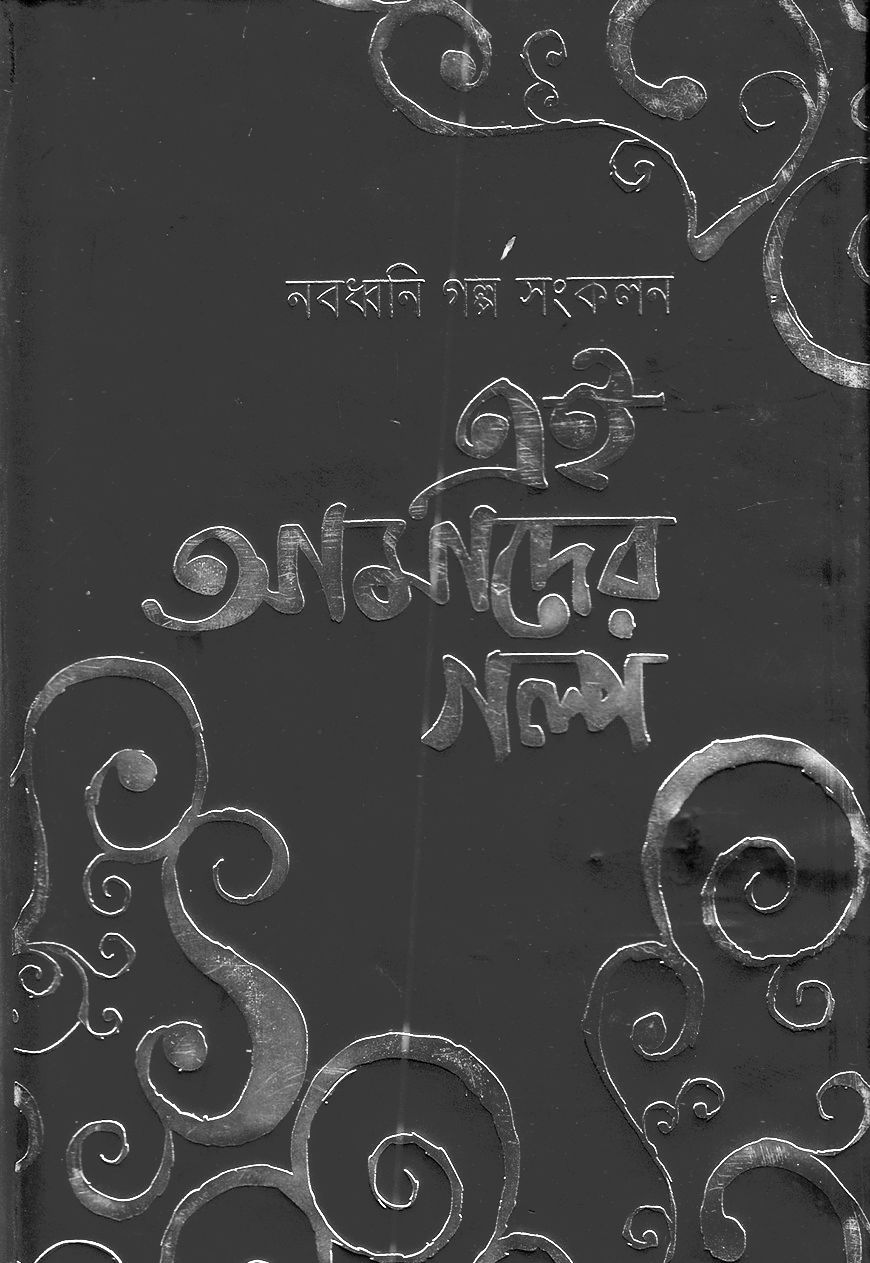 নবধ্বনি গল্প সংকলন
এই
আমাদের
গল্প